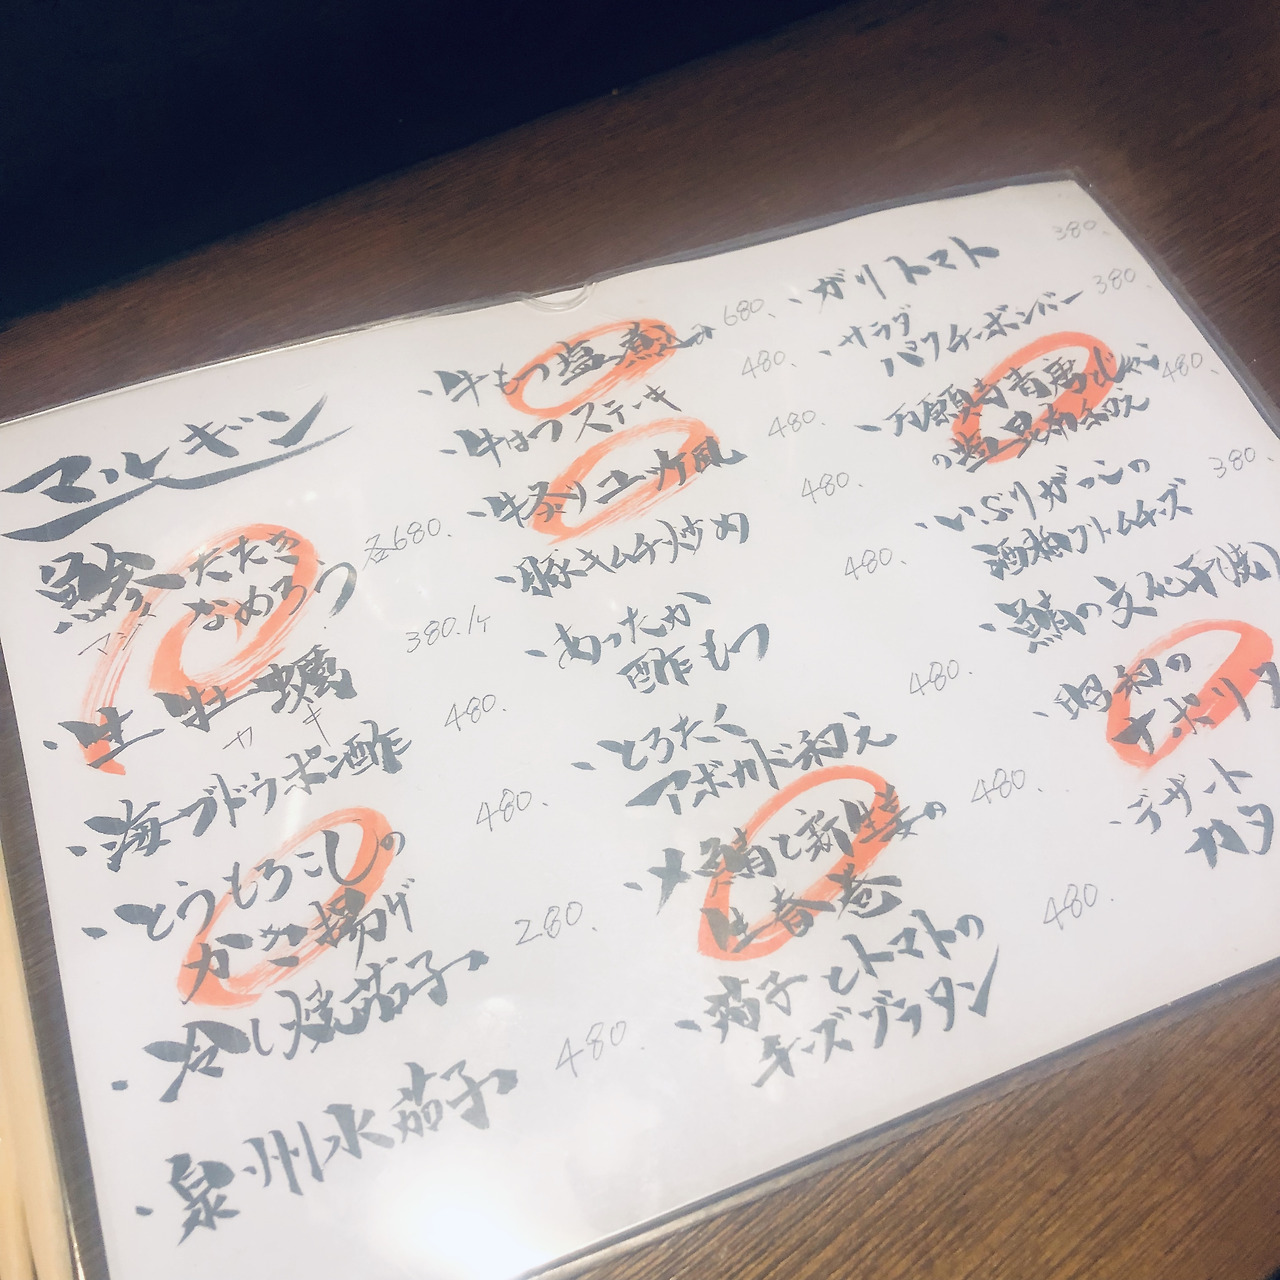 マルギン
鯵 たたき
なめろう 各680.
アジ
・生牡蠣 380./ケ
カキ
・海ブドウポン酢 480.
・とうもろこしの
かき揚げ 480.
・冷し焼茄子 280.
・泉州水茄子 480.
・牛もつ塩煮込み 680.
・牛はつステーキ 480.
・牛炙りユッケ風 480.
・豚キムチ炒め 480.
・あったか
酢もつ 480.
・とろたく
アボカド和え 480.
・〆鯖と新生姜の
生春巻 480.
・茄子とトマトの
チーズグラタン 480.
・ガリトマト 380.
・サラダ
パクチーボンバー 380.
・万願寺青唐とじゃこ
の塩昆布和え 480.
・いぶりがっこの
酒粕クリームチーズ 380.
・鯖の文化干(焼)
・昭和の
ナポリタ
・デザート
カタ